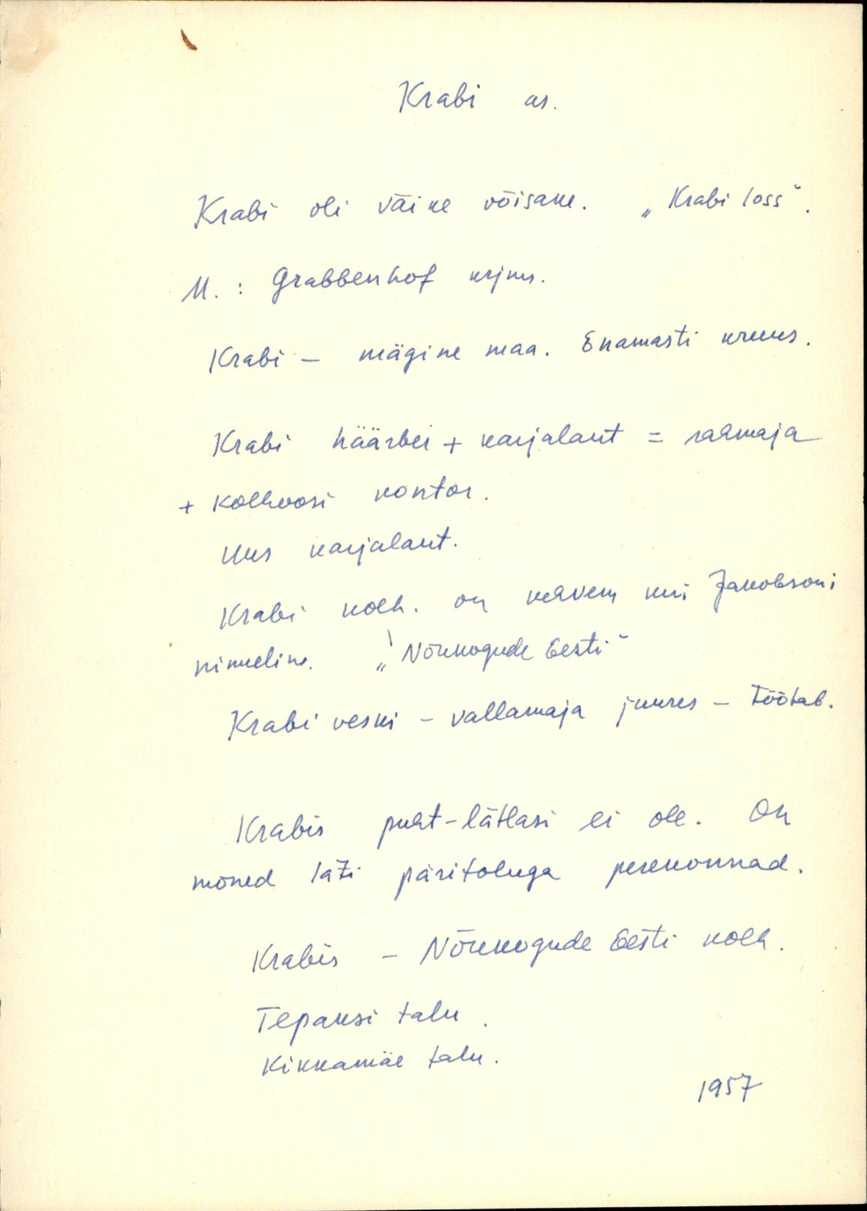 Krabi as.
Krabi oli väike mõisake. „Krabi loss“.
M.: Grabbenhof
Krabi – mägine maa. Enamasti kruus.
Krabi häärber + karjalaut = rahvamaja
+ Kolhoosi kontor.
Uus karjalaut.
Krabi kolh. on kehvem kui Jakobsoni
nimeline. „Nõukogude Eesti“
Krabi veski – vallamaja juures – töötab.
Krabis puht-lätlasi ei ole. On
mõned läti päritoluga perekonnad.
Krabis – Nõukogude Eesti kolh.
Tepaksi talu.
Kikkamäe talu.
1957